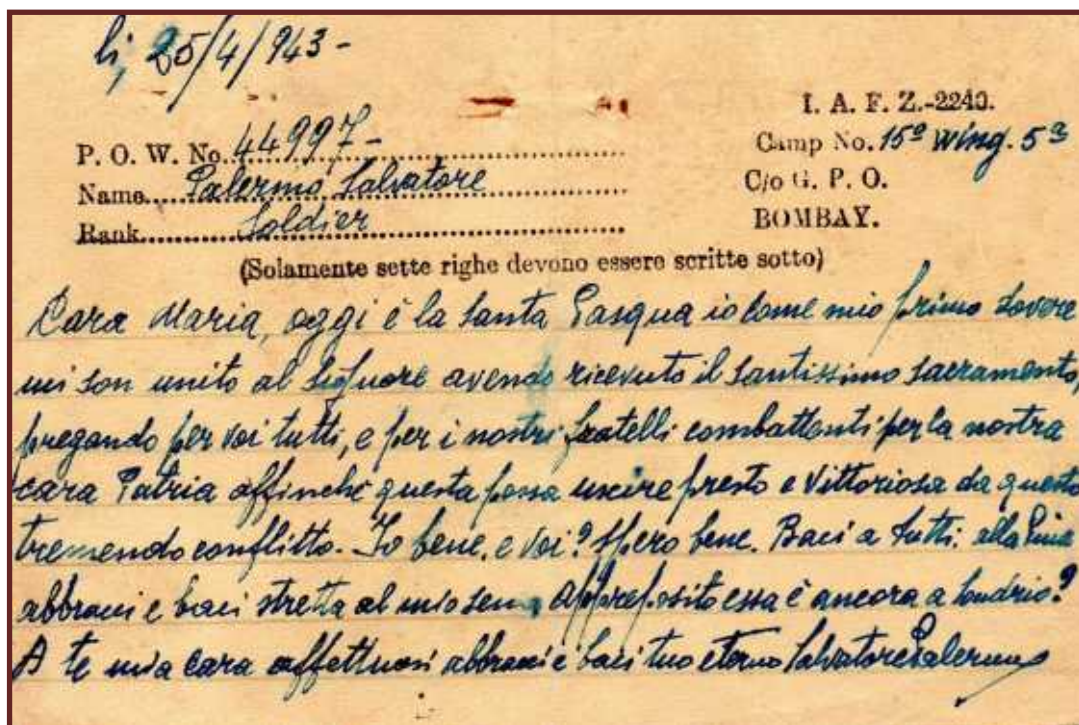 li, 25/4/943-
I. A. F. Z.-2240.
P. O. W. No. 44997-
Camp No. 15º Wing. 5ª
Name Palermo, Salvatore
C/o G. P. O.
Rank Soldier
BOMBAY.
(Solamente sette righe devono essere scritte sotto)
Cara Maria, oggi è la Santa Pasqua io come mio primo dovere
mi son unito al Signore avendo ricevuto il santissimo sacramento,
pregando per voi tutti, e per i nostri fratelli combattenti per la nostra
cara Patria affinchè questa possa uscire presto e vittoriosa da questo
tremendo conflitto. Io bene, e voi? Spero bene. Baci a tutti. alla
abbracci e baci stretta al mio seno, appreposito essa è ancora a Sondrio?
A te mia cara affettuosi abbracci e baci tuo eterno Salvatore Palermo